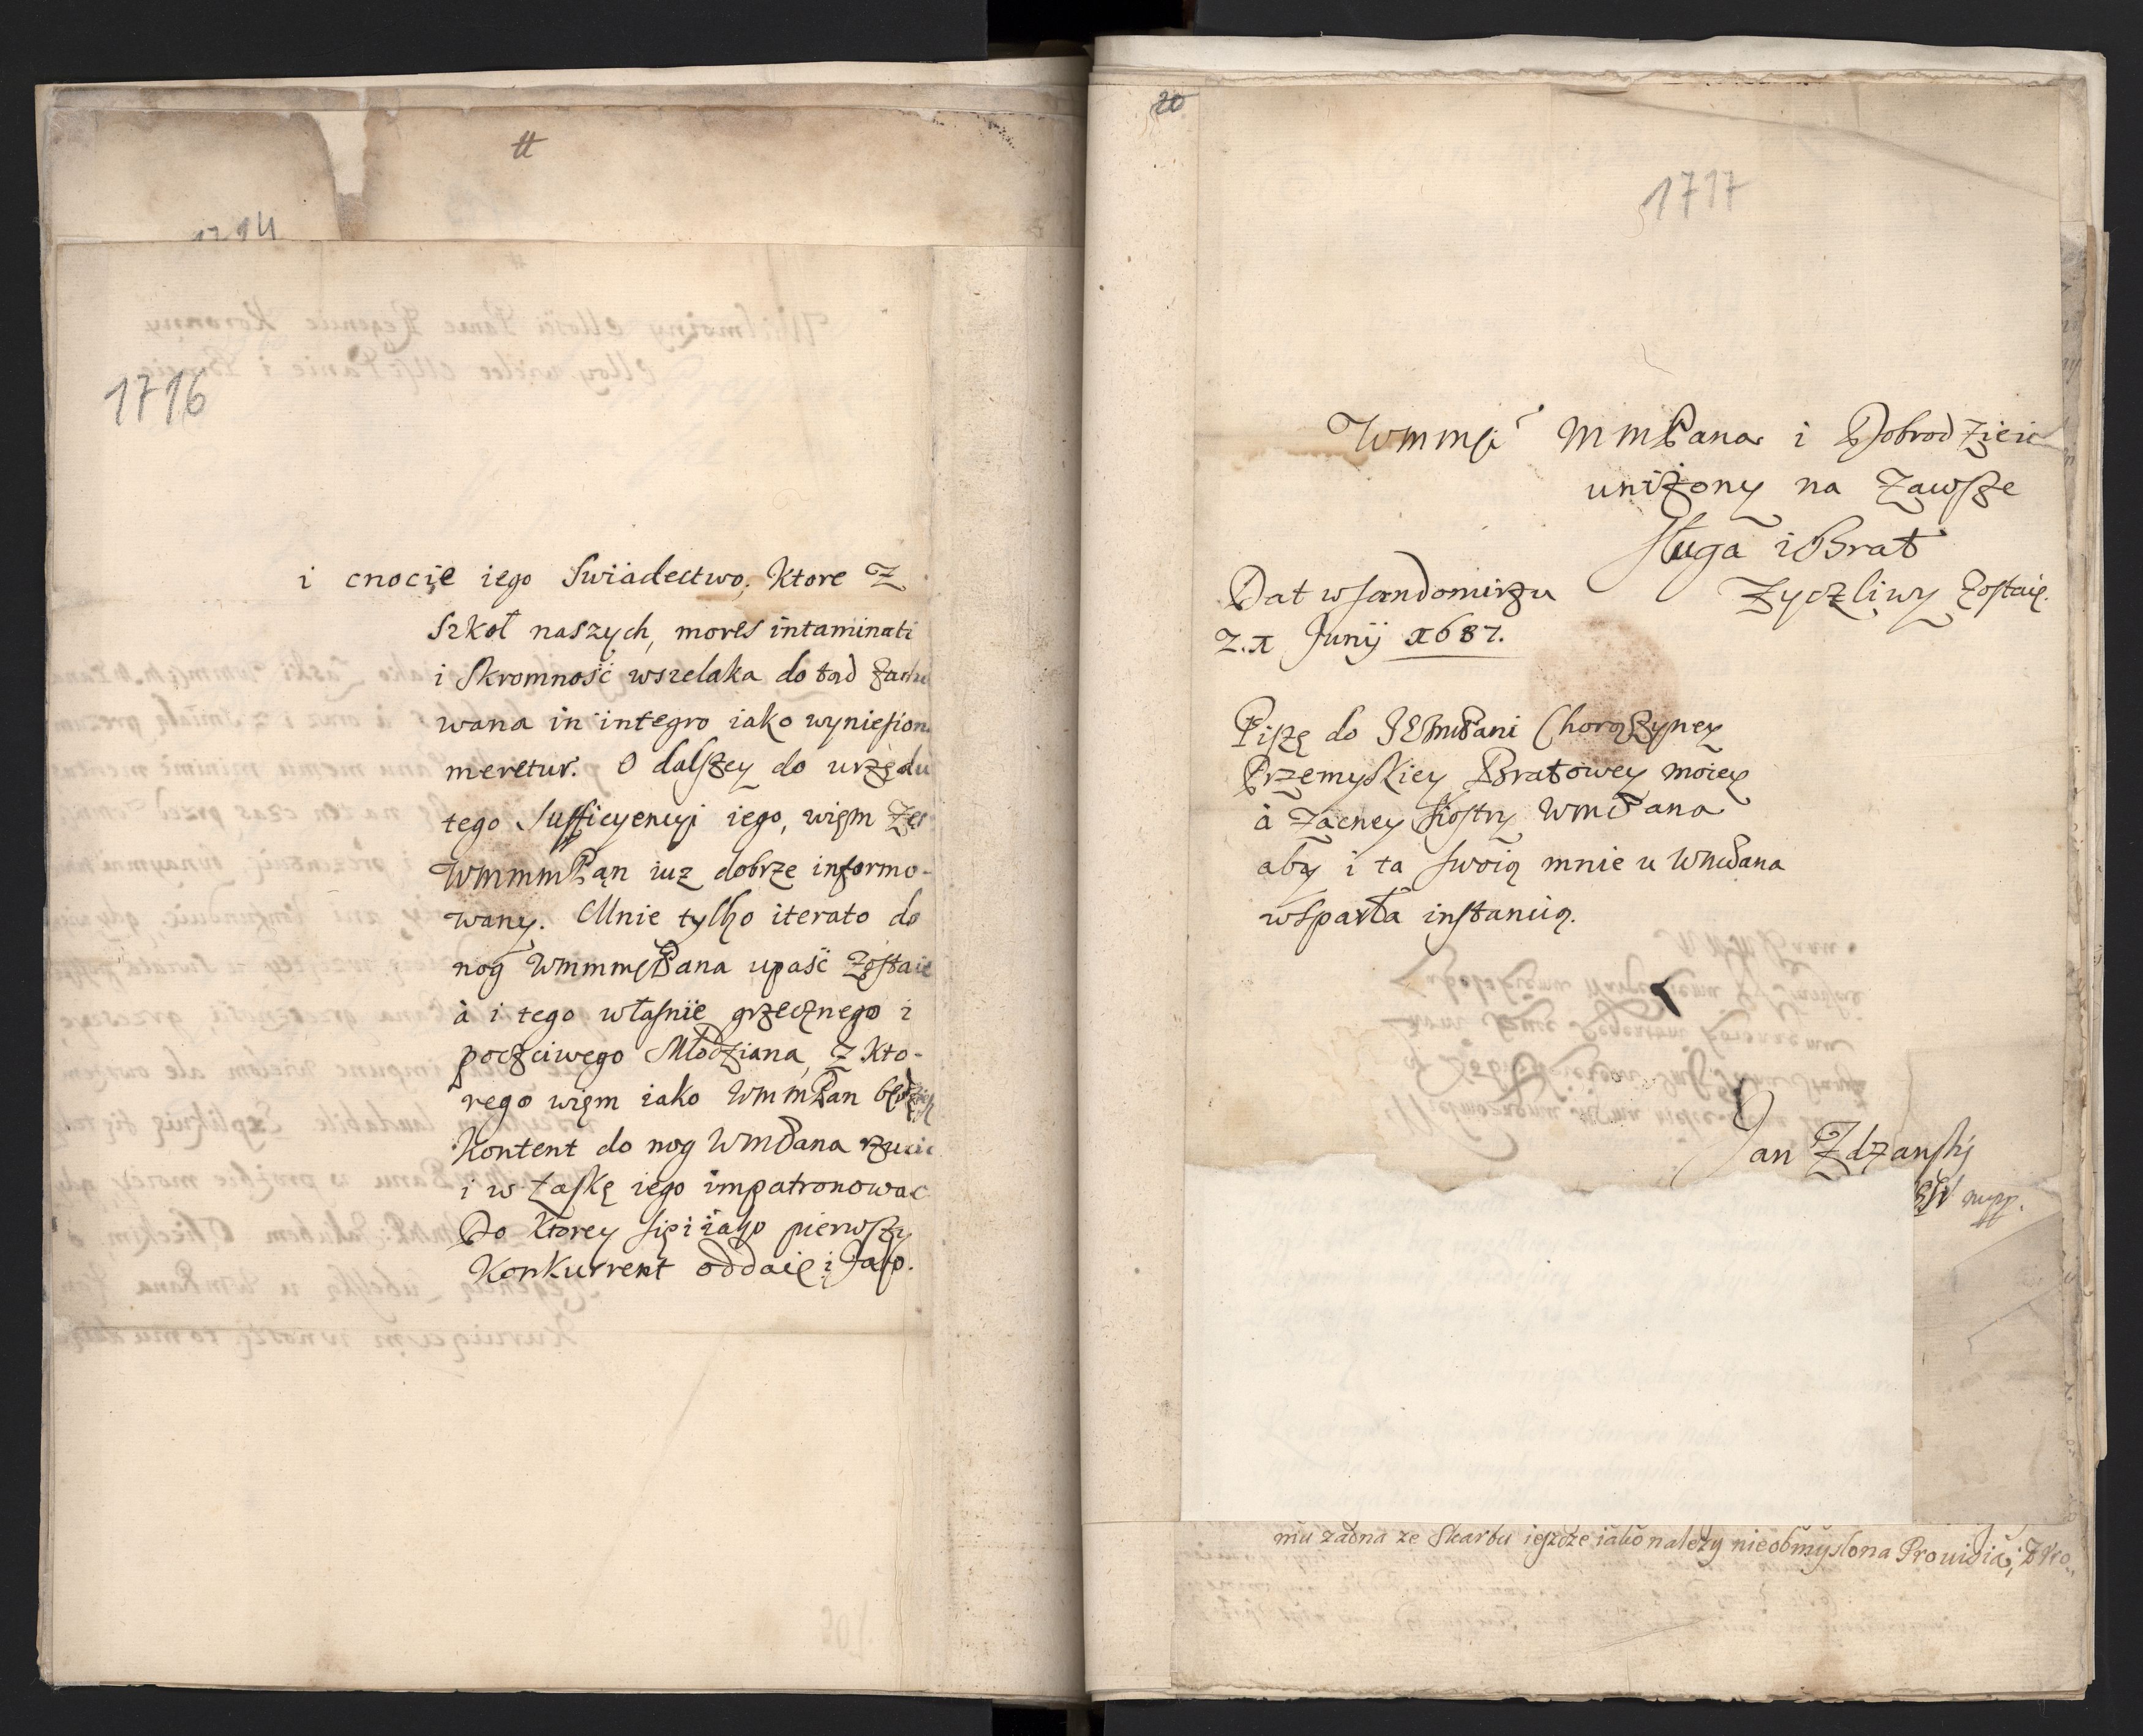 tt
1714
1716
i cnocie iego Swiadectwo, Ktore Z
Szkoł naszych, mores intaminati
i Skromność wszelaka do tąd
wana in integro iako wyniesion
meretur. O dalszey do urzędu
tego Sufficyencyi iego, wiem Ze
WmmmPąn iuz dobrze informo-
wany. Mnie tylko iterato do
nog WmmmPana upaść Zostaie
à i tego własnie grzecznego i
poczciwego Młodziana, Z Kto-
rego wiem iako WmmPan będzie
Kontent do nog WmPana rzucić
i w Łaskę iego impatronowac
Do Ktorey się i iako pierwszy
Konkurrent oddaię i Jako.
20
1717
Wmmści MmPana i Dobrodzieia
uniżony na Zawsze
sługa i Brat
Zyczliwy Zostaię.
Dat w Sandomirzu
2.1 Junij 1687.
Piszę do JEmPani Chorążyney
Przemyskiey Bratowey moiey
à Zacney Siostry WmPana
aby i ta swoią mnie u WmPana
wsparła instancią.
Jan Zdzanskj
mpp.
mu zadna ze Skarbu ieszcze iako nalezy nieobmyslona Prouisia, Z kto„